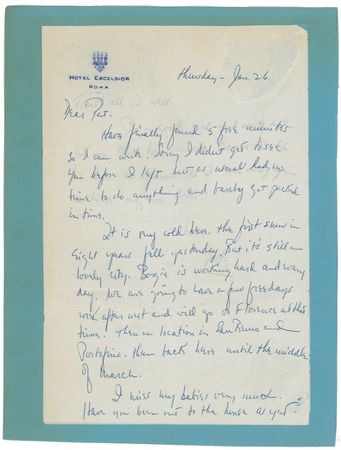 HOTEL EXCELSIOR
ROMA
Thursday - Jan. 26
Dear Pat -
Have finally found 5 free minutes
so I can write. Sorry I didn't get to see
you before I left but as usual had no
time to do anything and barely got packed
in time.
It is very cold here, the first snow in
eight years fell yesterday, but it's still a
lovely city. Bogie is working hard and every
day. We are going to have a few free days
week after next and will go to Florence at that
time. Then on location in San Remo and
Portofino. Then back here until the middle
of March.
I miss my babies very much.
Have you been out to the house as yet?